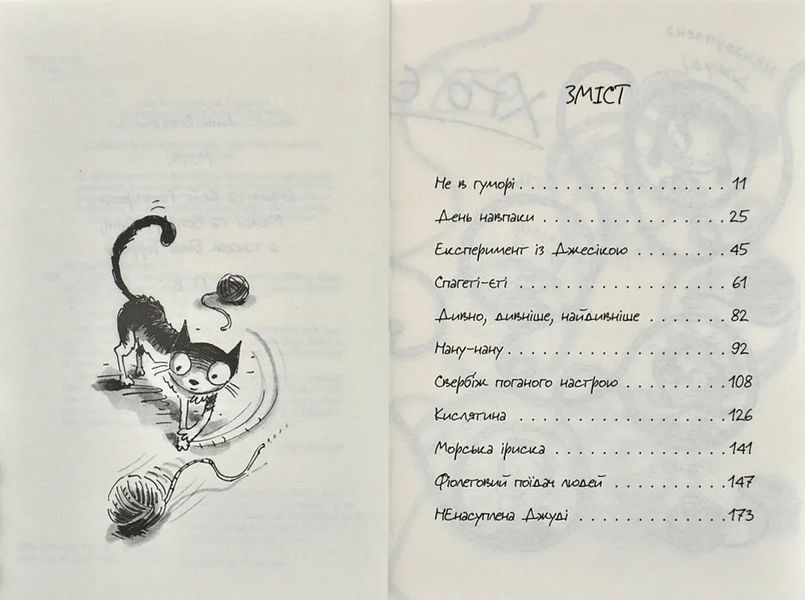 ЗМІСТ
Не в гуморі . . . . . . . . . . . . . . . . . . . . 11
День навпаки . . . . . . . . . . . . . . . . . . 25
Експеримент із Джесікою . . . . . . . . . 45
Спагеті-єті . . . . . . . . . . . . . . . . . . . . 61
Дивно, дивніше, найдивніше . . . . . . . . 82
Ману-нану . . . . . . . . . . . . . . . . . . . . . 92
Свербіж поганого настрою . . . . . . . . . . 108
Кислятина . . . . . . . . . . . . . . . . . . . . 126
Морська іриска . . . . . . . . . . . . . . . . . 141
Фіолетовий поїдач людей . . . . . . . . . . . 147
НЕнасуплена Джуді . . . . . . . . . . . . . . 173